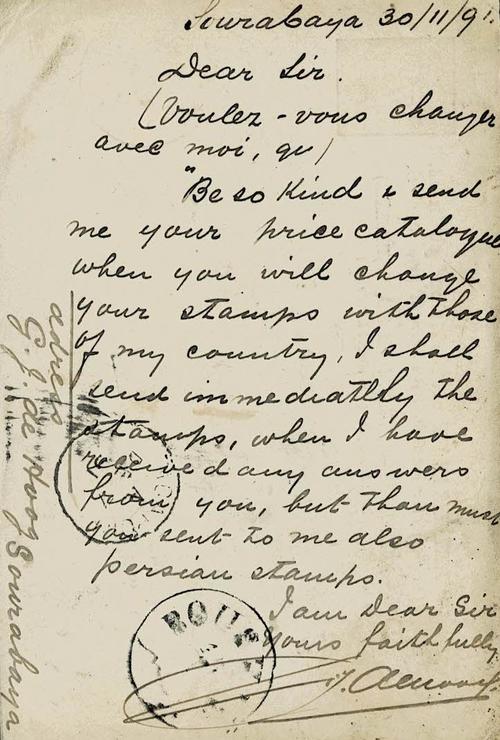 Sourabaya 30/11/9
Dear Sir.
(Voulez-vous changer
avec moi, qu)
"Be so kind & send
me your price catalogue
when you will change
your stamps with those
of my country, I shall
send immediatlly the
stamps, when I have
received any answers
from you, but than must
you sent to me also
persian stamps.
I am Dear Sir
yours faithfully
adress
G.J. de Hoog Sourabaya